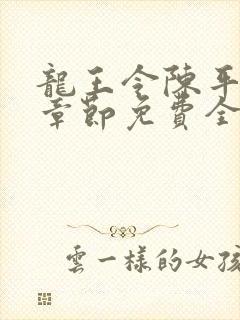 龍王令陳平
章節免費全
雲一樣的女孩